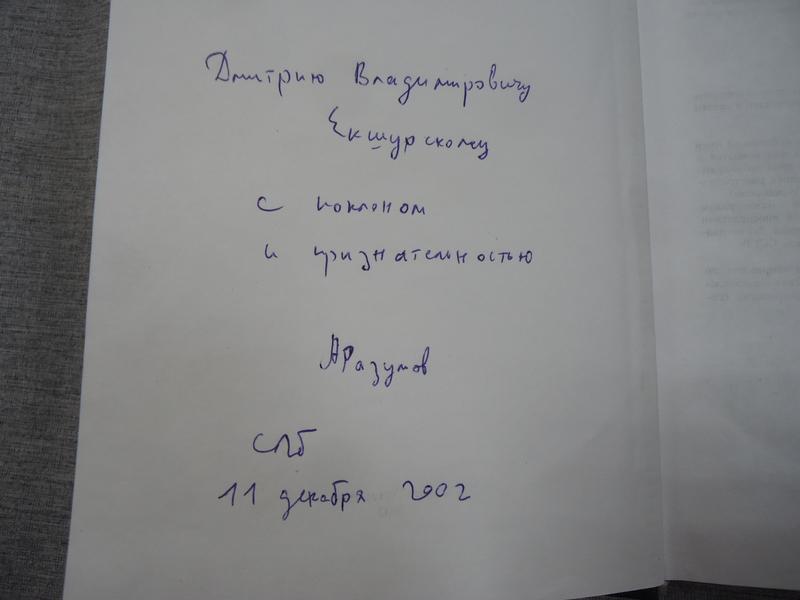 Дмитрию Владимировичу
Екшурскому
с поклоном
и признательностью
АРазумов
СПб
11 декабря 2002